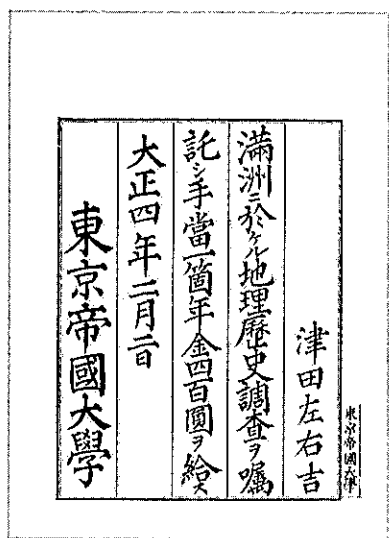 東京帝國大學
津田左右吉
滿洲ニ於ケル地理歷史調査ヲ囑
託シ手當一箇年金四百圓ヲ給ス
大正四年二月二日
東京帝國大學